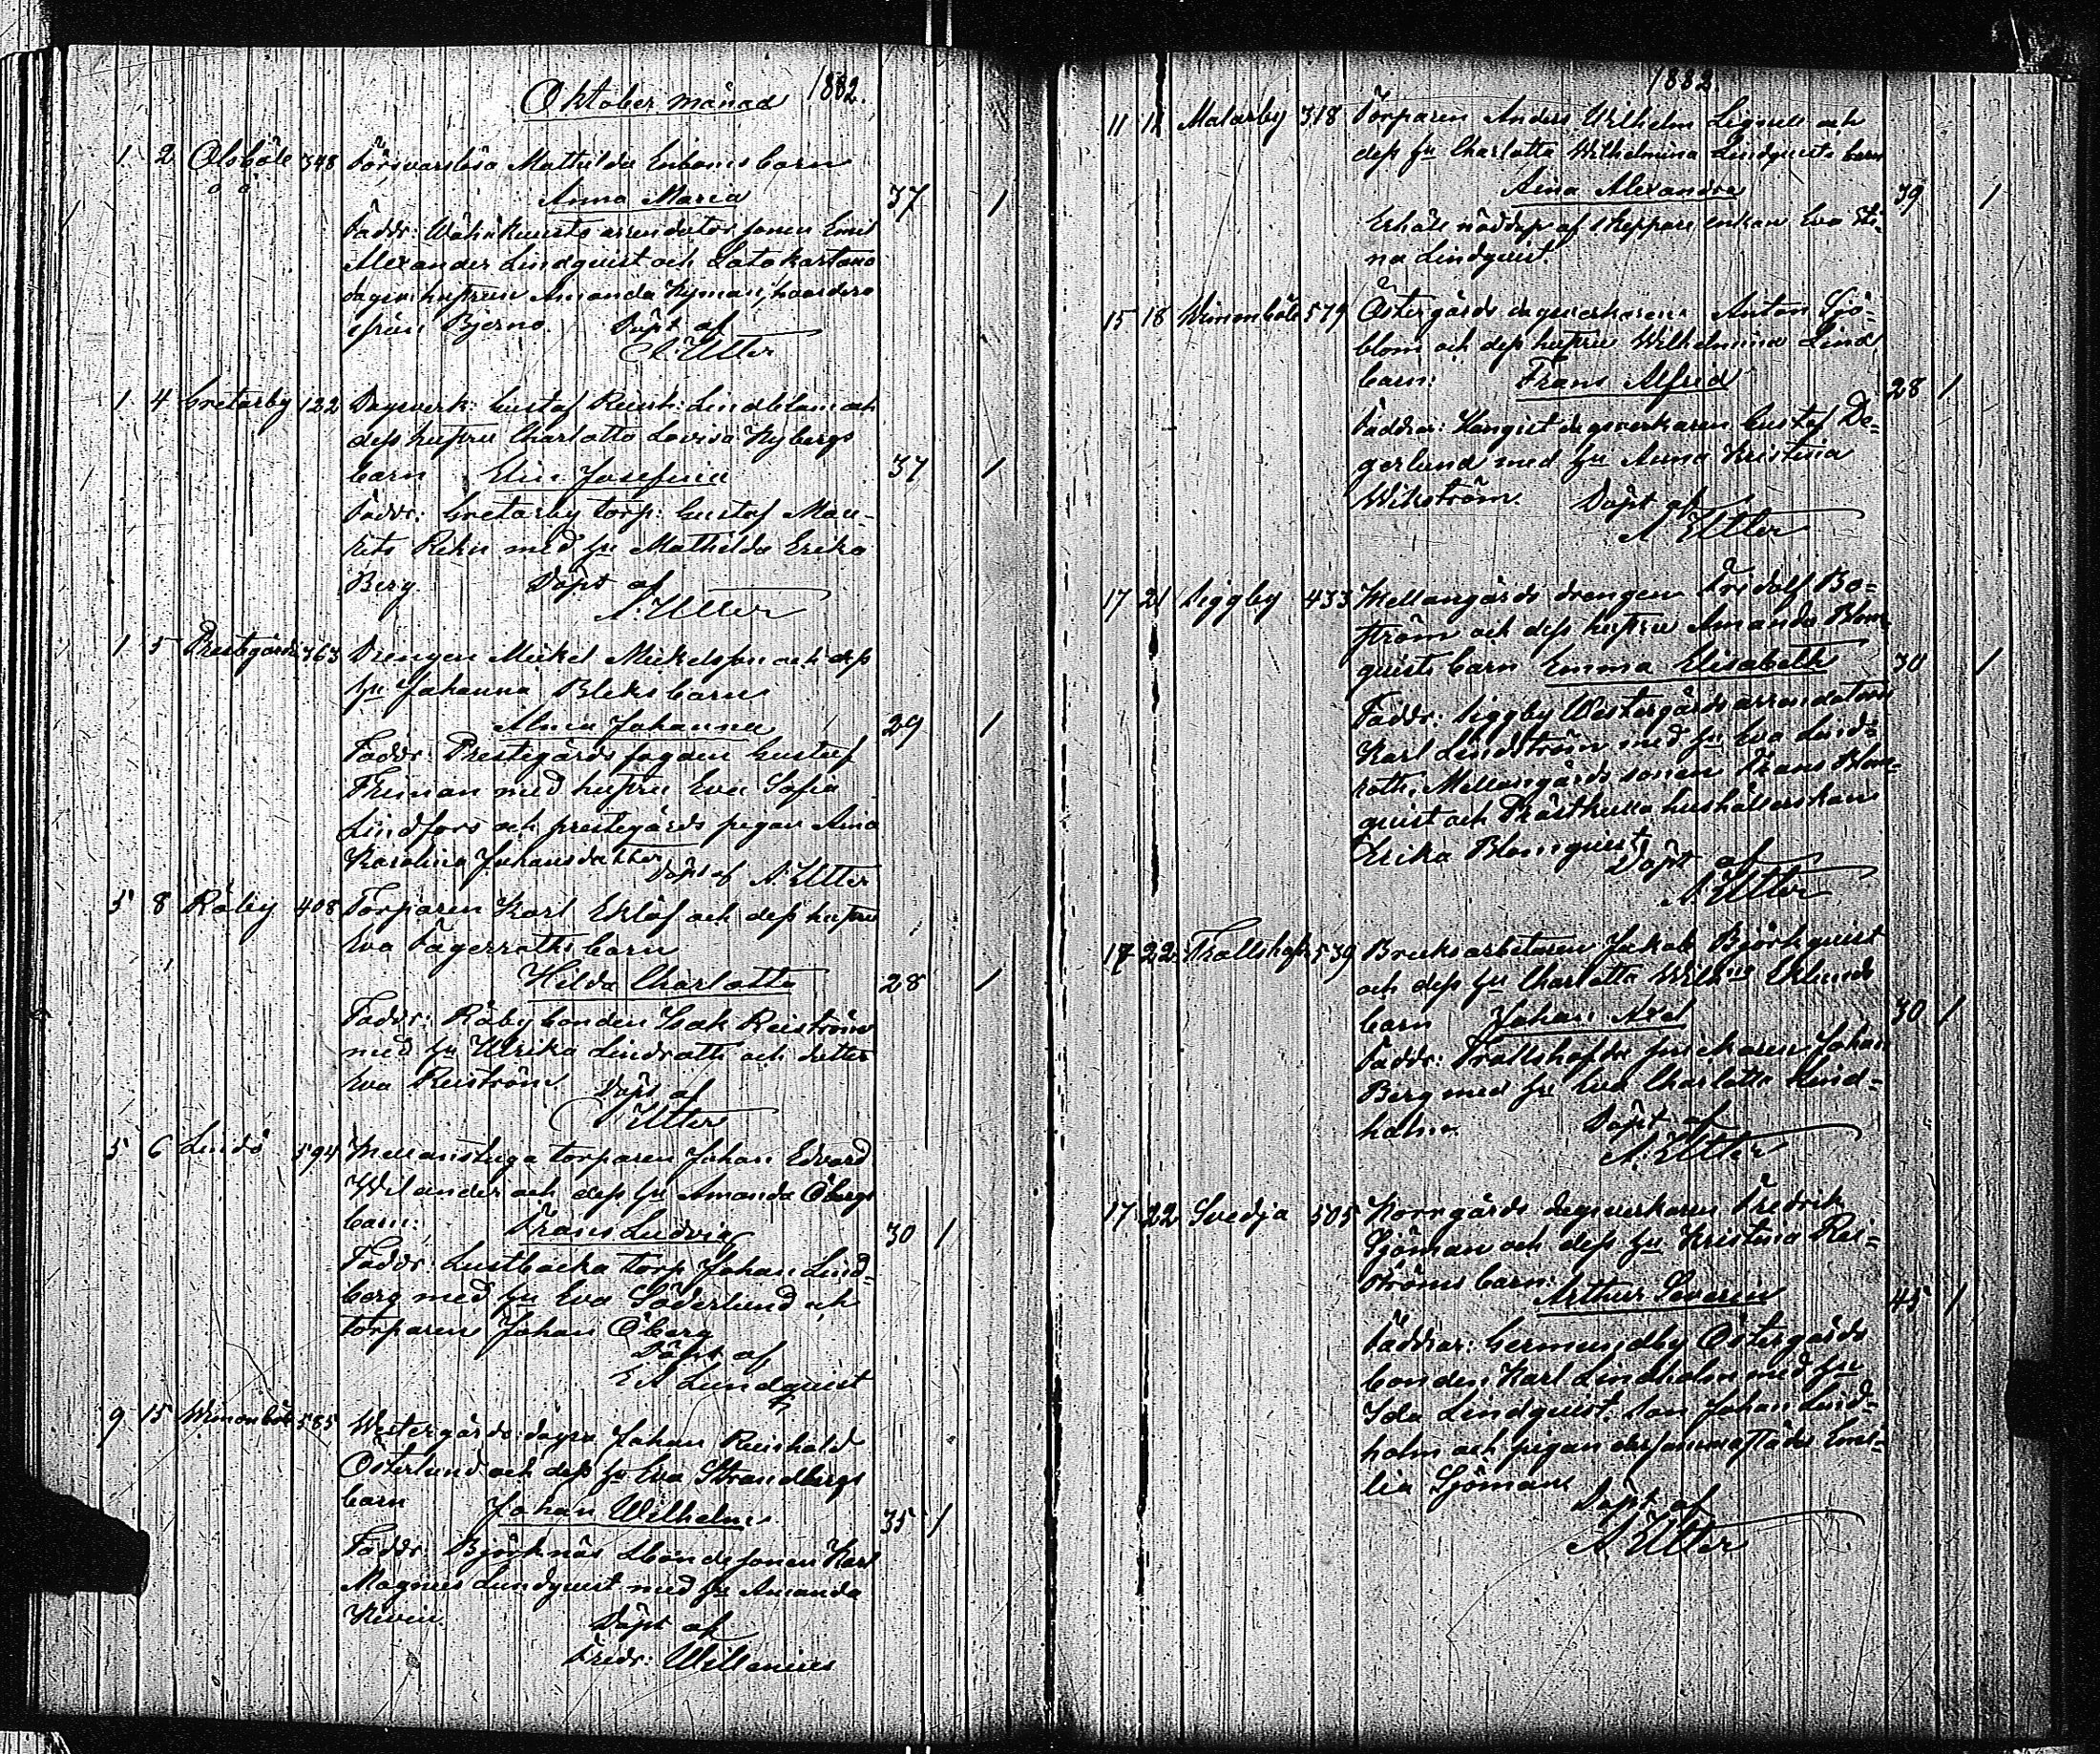 Oktober månad 1882.
1 2 Olsböle 348 Försvarslösa Mathilda Enboms barn
Anna Maria 37 1
Faddr: Arrendator sonen Emil
Alexander Lindquist och Latokartano
hustrun Amanda Nyman, hvardera
från Bjerno. Döpt af
A. Utter
1 4 Gretarby 122 Dagsverk: Gustaf Reinh: Lindblom och
dess hustru Charlotta Lovisa Nybergs
barn Elin Josefina 37 1
Faddr: Gretarby torp: Gustaf Mau-
rits Rehn med hu Mathilda Erika
Berg. Döpt af
A. Utter
1 5 Prestegården 363 Drengen Mickel Mickelsson och dess
hu Johanna Bleks barn
Alma Johanna 29 1
Faddr: Prestegårds fogden Gustaf
med hustru Eva Sofia
Lindfors och prestegårds pigan Aina
Karolina Johansdotter Döpt af A. Utter
5 8 Råby 408 Torparen Karl Eklöf och dess hustru
Eva Fagerroths barn
Hilda Charlotta 28 1
Faddr: Råby bonden Isak Reiström
med hu Ulrika Lindroth och dotter
Eva Reiström Döpt af
A Utter
5 6 Lindö 594 Mellanstuga torparen Johan Edvard
Welander och dess hu Amanda Öbergs
barn: Frans Ludvig 30 1
Faddr: Lustbacka torp. Johan Lind-
berg med hu Eva Söderlund och
torparen Johan Öberg
Döpt af
E A Lundquist
9 15 Westergårds dagsv Johan Reinhold 585
Österlund och dess hu Eva Strandbergs
barn Johan Wilhelm 35 1
Faddr. Björknäs bonde sonen Karl
Magnus Lundquist med hu Amanda
Döpt af
Fredr: Willenius
1882.
11 11 Malarby 318 Torparen Anders Wilhelm Lignell och
dess hu Charlotta Wilhelmina Lindquists barn
Aina Alexandra 39 1
Erhöll nöddop af skeppare enkan Eva Sti-
na Lindquist.
15 18 579 Östergårds dagsverkaren Anton Sjö-
blom och dess hustru Wilhelmina Lind
barn: Frans Alfrid 28 1
Faddrar: dagsverkaren Gustaf De-
gerlund med hu Anna Kristina
Wikström Döpt af
A Utter
17 21 Siggby 433 Mellangårds drengen Fridolf Bo-
ström och dess hustru Amanda Blom-
quists barn Emma Elisabeth 30 1
Faddr: Siggby Westergårds arrendatorn
Karl Lindström med hu Eva Lind-
roth, Mellangårds sonen Frans Blom-
quist och hushållerskan
Erika Blomquist
Döpt af
A Utter
17 22 Trollshofda 539 Bruksarbetaren Jakob Björkquist
och dess hu Charlotta Wilh:na Eklunds
barn Johan Axel 30 1
Faddr: Trollshofda snickaren Johan
Berg med hu Eva Charlotta Lind-
holm. Döpt af
A. Utter
17 22 Svedja 505 Korngårds dagsverkaren Fredrik
Sjöman och dess hu Kristina Rei-
ströms barn:
Arthur Severin 45 1
Faddrar: Germundby Östergårds
bonden Karl Lindholm med hu
Ida Lindquist, son Johan Lind-
holm och pigan dersammastädes Emi-
lia Sjöman
Döpt af
A Utter